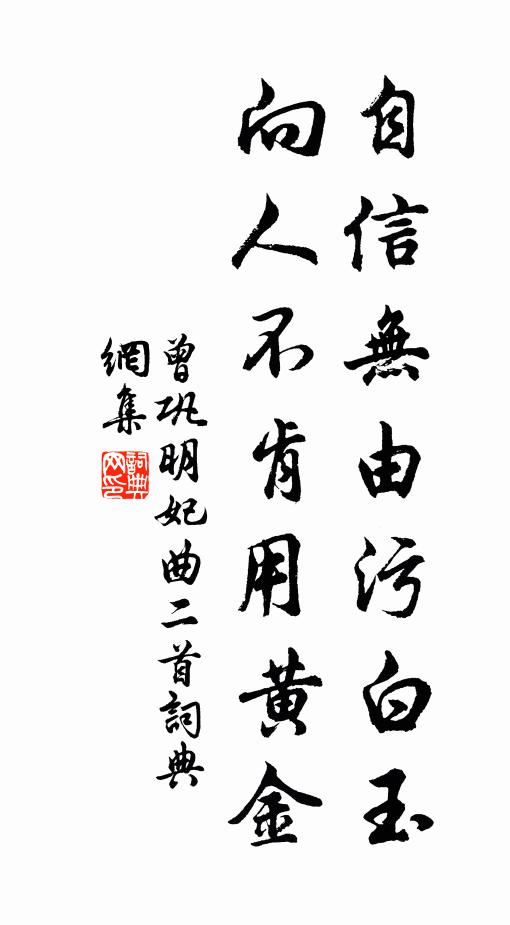 自信無由污白玉
向人不肯用黃金
曾巩明妃曲二首詞典
網集
詞典网印